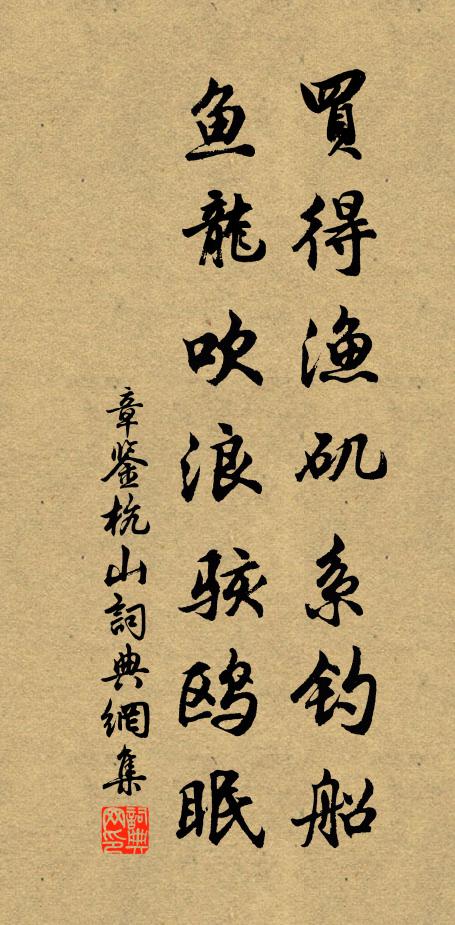 買得渔矶系钓船
鱼龍吹浪骇鸥眠
章鉴杭山詞典網集
詞典网印